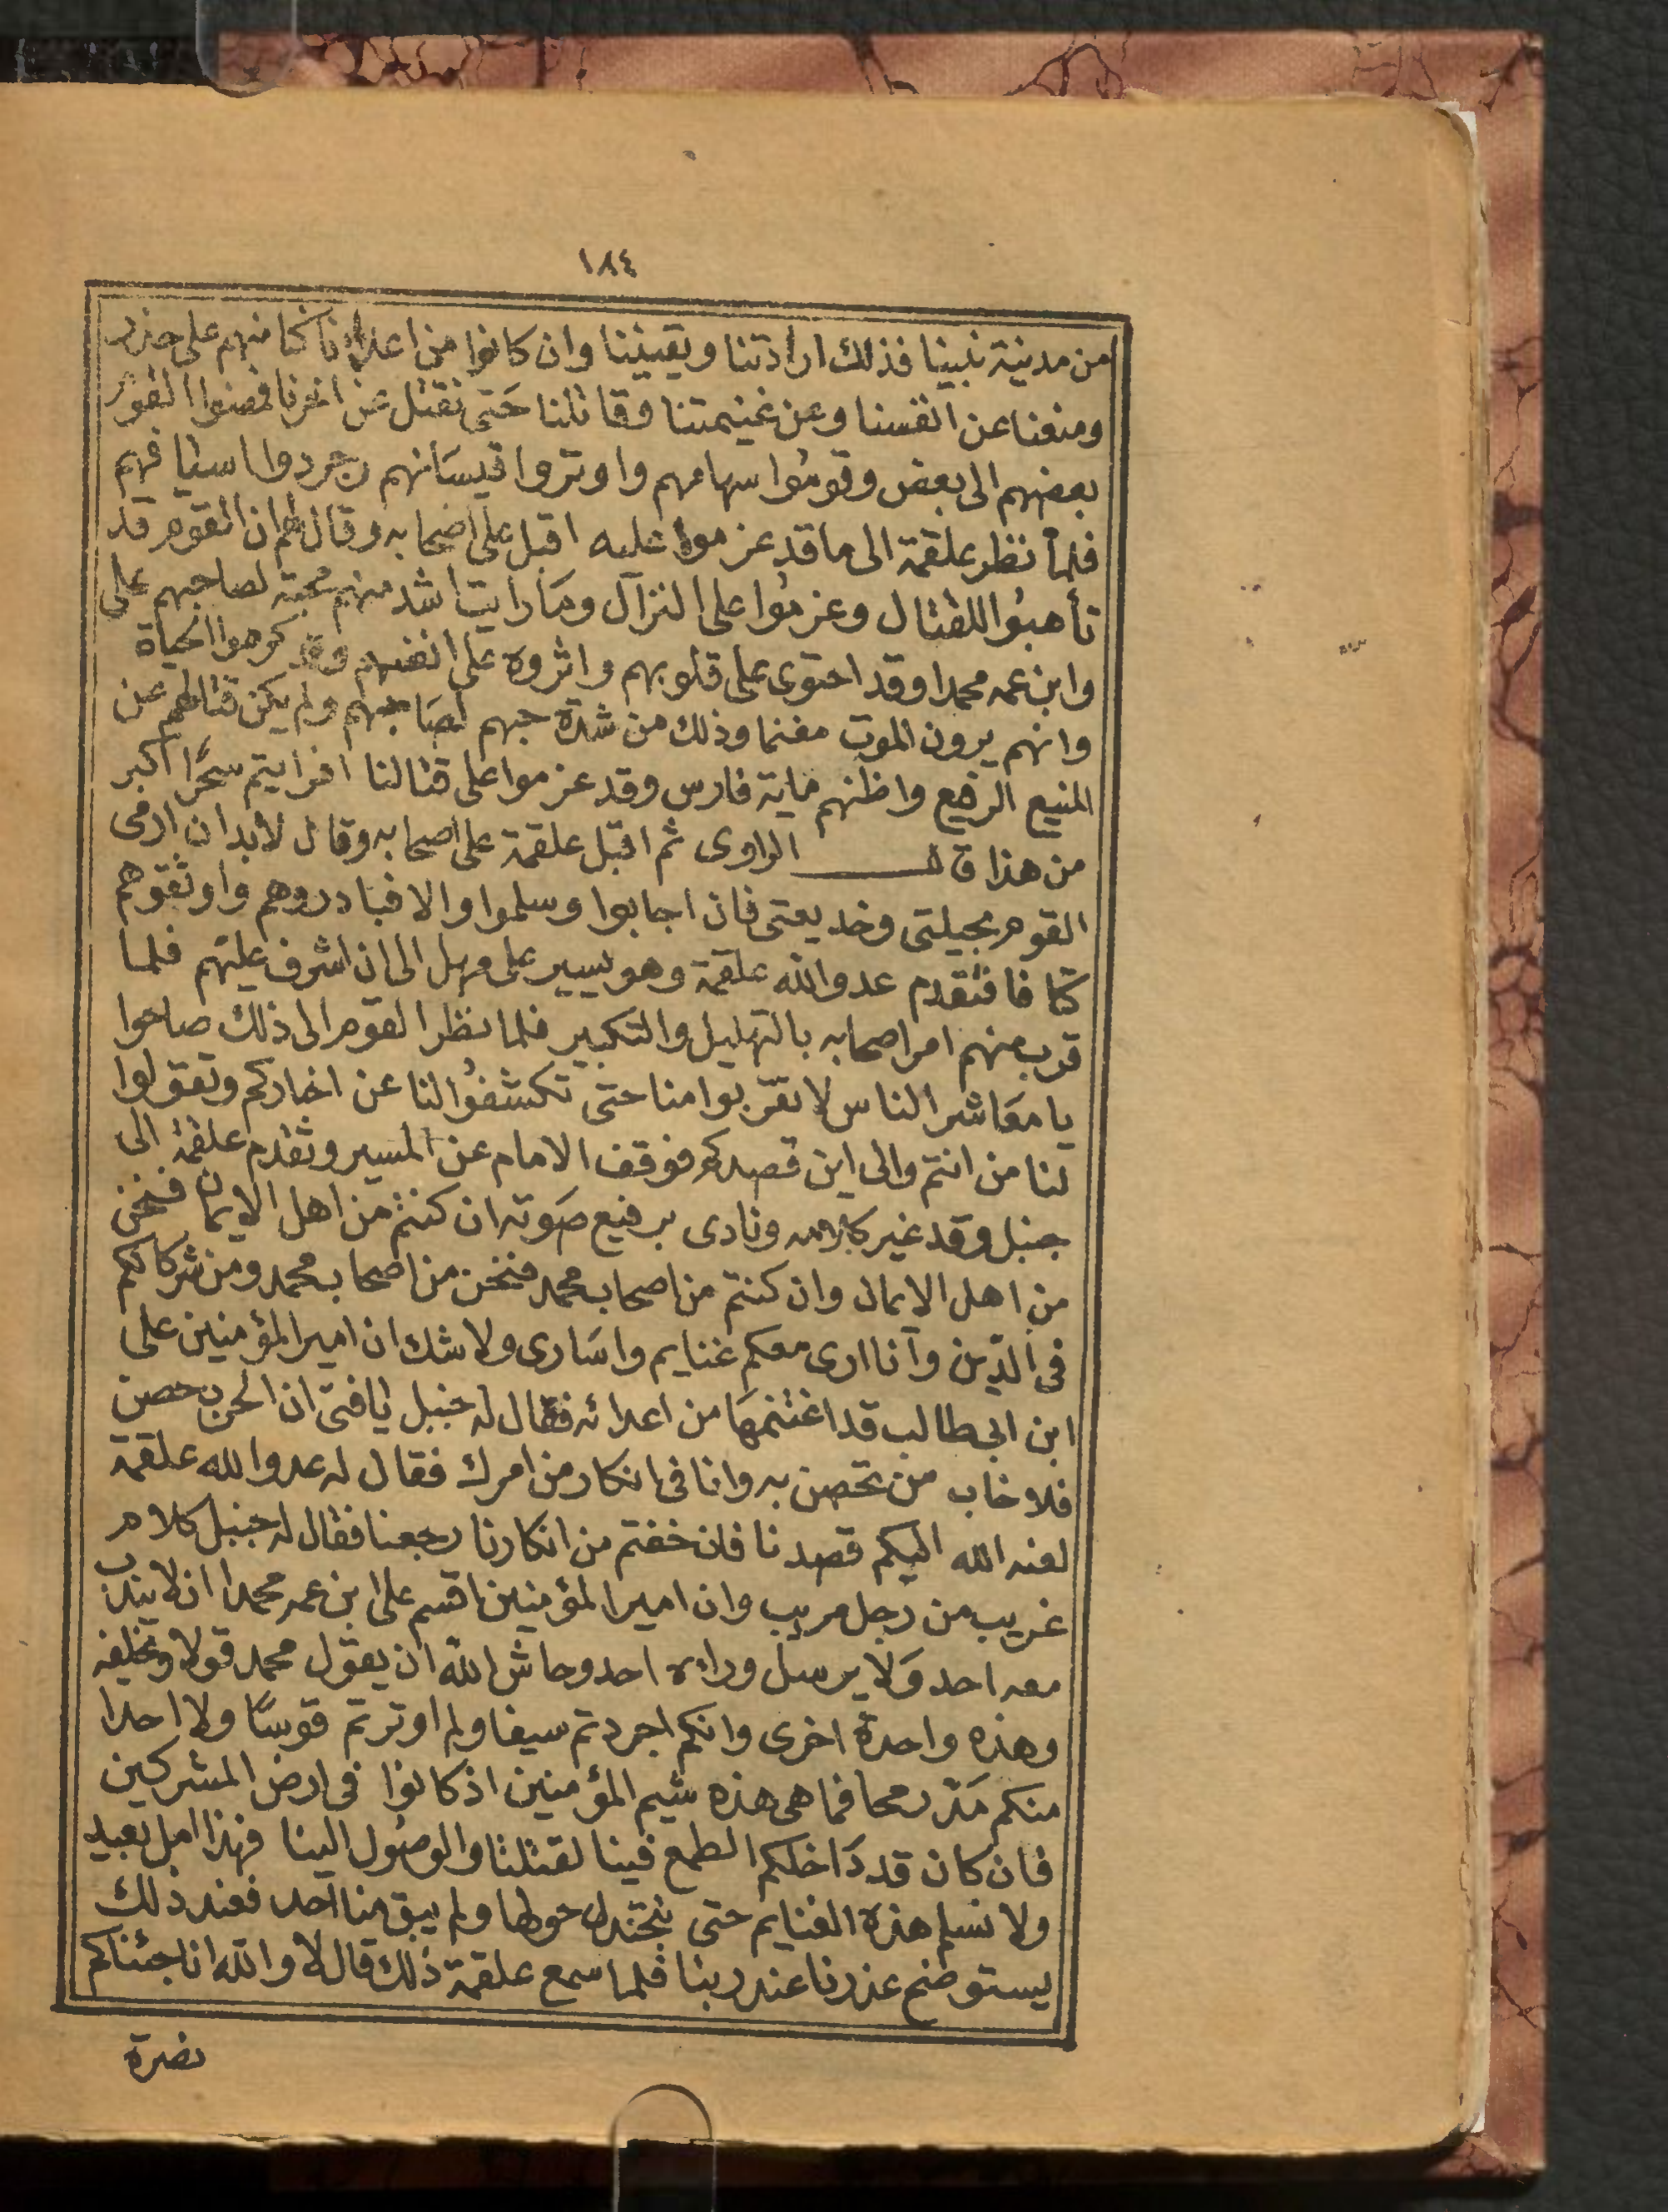 ١٨٤
من مدينة نبينا فذلك ارادتنا ويقيننا وان كانوا من اعدائنا كنا منهم على حذر
ومنعنا عن انفسنا وعن غنيمتنا وقاتلنا حتى نقتل عن اخرنا فضنوا القوم
بعضهم الى بعض وقوموا سهامهم واوتروا قيسانهم وجردوا اسيافهم
فلما نظر علقمة الى ما قد عزموا عليه اقبل على اصحابه وقال لهم ان القوم قد
تأهبوا للقتال وعزموا على النزآل وما رايت اشد منهم محبة لصاحبهم على
وابن عمه محمدا وقد احتوى على قلوبهم واثروه على انفسهم وقد كرهوا الحياة
وانهم يرون الموت مغنما وذلك من شدة حبهم لصاحبهم ولم يكن قتالهم عن
المنيع الرفيع واظنهم ماية فارس وقد عزموا على قتالنا افرايتم سحرًا اكبر
من هذا قال الراوى ثم اقبل علقمة على اصحابه وقال لابد ان ارمى
القوم بحيلتى وخديعتى فان اجابوا وسلموا والا فبادروهم واوثقوهم
كتافا فتقدم عدو الله علقمة وهو يسير على مهل الى ان اشرف عليهم فلما
قرب منهم امر اصحابه بالتهليل والتكبير فلما نظر القوم الى ذلك صاحوا
يا معاشر الناس لا تقربوا منا حتى تكشفوا لنا عن اخباركم وتقولوا
لنا من انتم والى اين قصدكم فوقف الامام عن المسير وتقدم علقمة الى
جنبل وقد غير كلامه ونادى برفيع صوته ان كنتم من اهل الايمان فنحن
من اهل الايمان وان كنتم من اصحاب محمد فنحن من اصحاب محمد ومن شركائكم
فى الدين وآنا ارى معكم غنايم واسارى ولا شك ان امير المؤمنين على
ابن ابى طالب قد اغتنمها من اعدائه فقال له جنبل يا فتى ان الحزن حصن
فلا خاب من تحصن به وانا فى انكار من امرك فقال له عدو الله علقمة
لعنه الله اليكم قصدنا فان خفتم من انكارنا رجعنا فقال له جنبل كلام
غريب من رجل مريب وان امير المؤمنين اقسم على ابن عمه محمدا انه لا يندب
معه احد ولا يرسل وراءه احد وحاش الله ان يقول محمد قولا ويخلفه
وهذه واحدة اخرى وانكم اجردتم سيفا ولم اوترتم قوسًا ولا احدا
منكم مد رمحا فما هى هذه شيم المؤمنين اذ كانوا فى ارض المشركين
فان كان قد داخلكم الطمع فينا لقتلنا والوصول الينا فهذا امل بعيد
ولا نسلم هذه الغنايم حتى ننجندل حولها ولم يبق منا احد فعند ذلك
يستوضح عذرنا عند ربنا فلما سمع علقمة ذلك قال لا والله انا جئناكم
نصرة